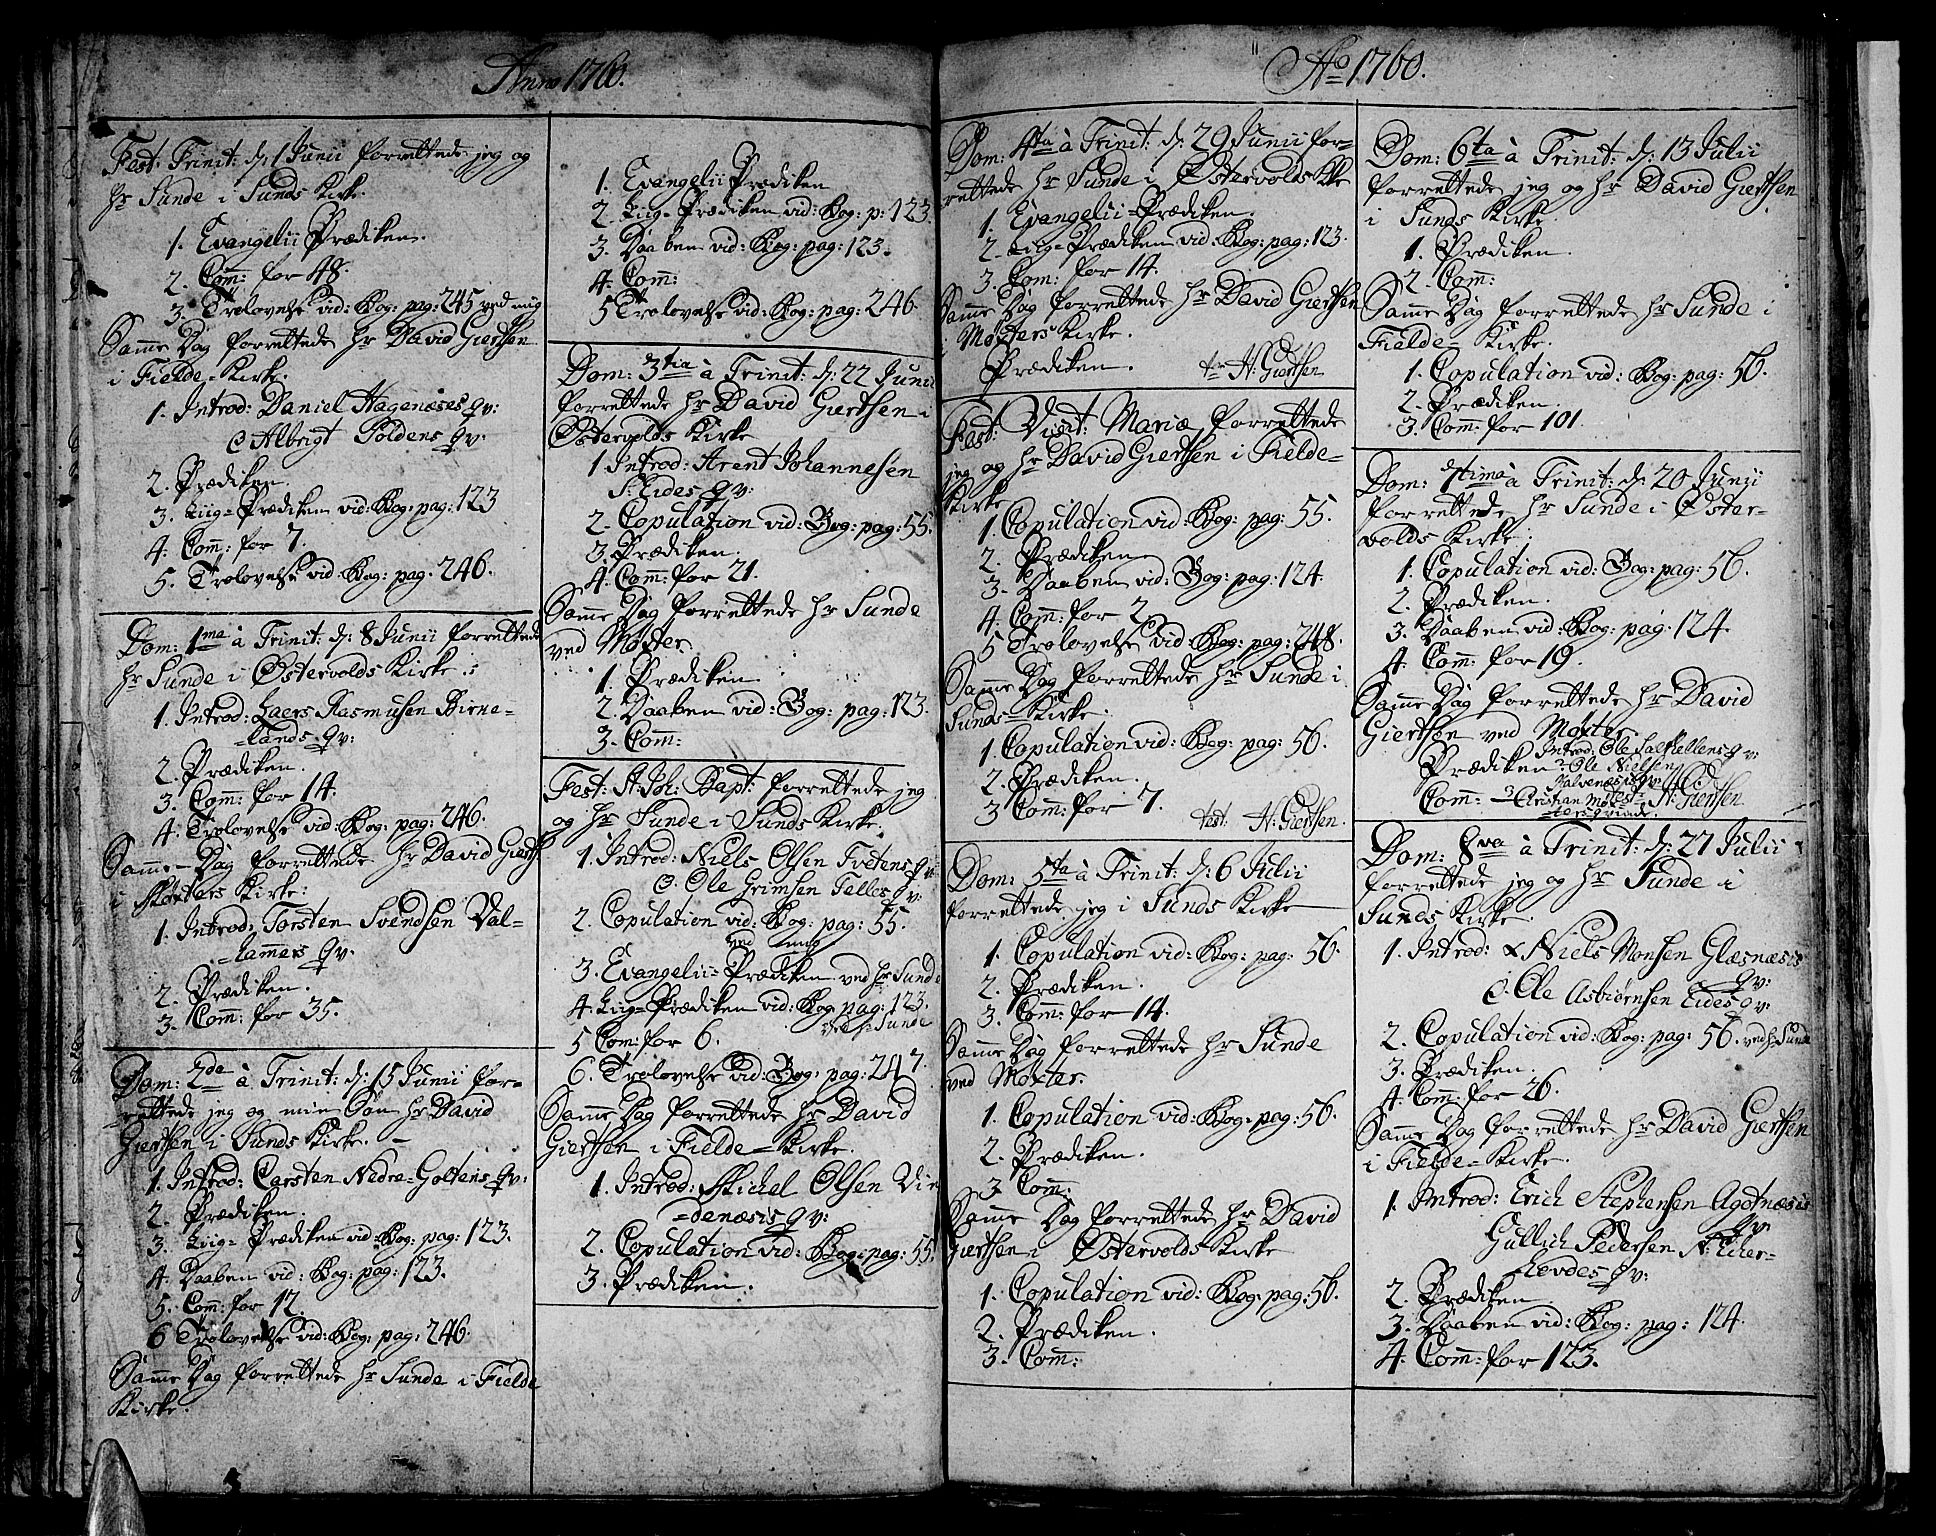 Anno 1760.
Fest: Trinit: d: 1 Junii forrettede jeg og
hr Sunde i Sunds Kirke.
1. Evangelii Prædiken.
2. Com: for 48.
3. Trolovelse vid: Bog: pag: 245 ved mig
Samme Dag forrettede hr David Giertsen
i Fielde-Kirke.
1. Introd: Daniel Hagenæses qv:
e Albrigt Toldens qv:
2. Prædiken.
3. Liig-Prædiken vid: Bog: pag: 123
4. Com: for 7.
5. Trolovelse vid: Bog: pag: 246.
Dom: 1ma à Trinit: d: 8 Junii forrettede
hr Sunde i Østervolds Kirke:
1. Introd: Laers Rasmusen Birke-
-lands qv:
2. Prædiken.
3. Com: for 14.
4. Trolovelse vid: Bog: pag: 246.
Samme-Dag forrettede hr David Gierts.
i Møxters Kirke:
1. Introd: Torsten Svendsen Val-
-hammers qv.
2. Prædiken.
3. Com: for 35.
Dom: 2de à Trinit: d: 15 Junii for-
rettede jeg og min Søn hr David
Giertsen i Sunds Kirke.
1. Introd: Carsten Nedre-Goltens qv:
2. Prædiken.
3. Liig-Prædiken vid: Bog: pag: 123.
4. Daaben vid: Bog: pag: 123.
5. Com: for 17.
6 Trolovelse vid: Bog: pag: 246.
Samme Dag forrettede hr Sunde i Fielde
Kirke.
1. Evangelii Prædiken
2. Liig-Prædiken vid: Bog: p: 123
3. Daaben vid: Bog: pag: 123.
4. Com:
5 Trolovelse vid: Bog: pag: 246
Dom: 3tia à Trinit: d: 22 Junii
forrettede hr David Giertsen i
Østervolds Kirke
1 Introd: Arent Johannesen
S: Eides qv:
2. Copulation vid: Bog: pag: 55.
3. Prædiken.
4. Com: for 21.
Samme Dag forrettede hr Sunde
ved Møxter
1. Prædiken
2. Daaben vid: Bog: pag: 123.
3. Com:
Fest: St. Joh: Bapt: forrettede jeg
og hr Sunde i Sunds Kirke.
1. Introd: Niels Olsen Tvetens qv:
e. Ole Grimsen Telles qv:
2. Copulation vid: Bog: pag: 55.
ved mig
3. Evangelii-Prædiken ved hr Sunde
4. Liig-Prædiken vid: Bog: pag: 123.
ved hr Sunde
5 Com: for 6.
6. Trolovelse vid: Bog: pag: 247.
Samme Dag forrettede hr David
Giertsen i Fielde-Kirke.
1. Introd: Michel Olsen Vin
-denæsis qv:
2. Copulation vid: Bog: pag: 55.
3. Prædiken.
Ao 1760.
Dom: 4ta à Trinit: d: 29 Junii for-
rettede hr Sunde i Østervolds Kke
1. Evangelii-Prædiken.
2. Liig-Prædiken vid: Bog: pag: 123.
3. Com: for 14.
Samme Dag forrettede hr David Giertsen
i Møxters Kirke.
Prædiken. H: Giertsen
Fest: Visit: Mariæ forrettede
jeg og hr David Giertsen i Fielde-
Kirke
1. Copulation vid: Bog: pag: 55.
2. Prædiken
3. Daaben vid: Bog: pag: 124.
4. Com: for 2
5 Trolovelse vid: Bog: pag: 248.
Samme Dag forrettede hr Sunde i
Sunds-Kirke.
1 Copulation vid: Bog: pag: 56.
2. Prædiken.
3 Com: for 7. test: H: Giertsen.
Dom: 5ta à Trinit: d: 6 Julii
forrettede jeg i Sunds Kirke
1. Copulation vid: Bog: pag: 56.
2. Prædiken.
3. Com: for 14.
Samme Dag forrettede hr Sunde
ved Møxter.
1. Copulation vid: Bog: pag: 56.
2. Prædiken.
3 Com:
Samme Dag forrettede hr David
Giertsen i Østervolds Kirke
1. Copulation vid: Bog: pag: 56.
2. Prædiken.
3. Com:
Dom: 6ta à Trinit: d: 13 Julii
forrettede jeg og hr David Giertsen
i Sunds Kirke.
1. Prædiken.
2. Com:
Samme Dag forrettede hr Sunde i
Fielde-Kirke.
1. Copulation vid: Bog: pag: 56.
2. Prædiken.
3. Com: for 101.
Dom: 7tima à Trinit: d: 20 Junii
forrettede hr Sunde i Øster-
volds Kirke.
1. Copulation vid: Bog: pag: 56.
2. Prædiken.
3. Daaben vid: Bog: pag: 124.
4. Com: for 19.
Samme Dag forrettede hr David
Giertsen ved Møxter.
Introd: Ole Kalshellens qv:
Prædiken 2. Ole Nielsen
Com: 3 Christian test: H: Giertsen
Dom: 8va à Trinit: d: 27 Julii
forrettede jeg og hr Sunde i
Sunds Kirke.
1. Introd: Niels Monsen Glæsnæsis
qv:
e. Ole Asbiørnsen Eides qv:
2. Copulation vid: Bog: pag: 56. ved hr Sunde
3. Prædiken.
4. Com: for 26.
Samme Dag forrettede hr David Giertsen
i Fielde-Kirke.
1. Introd: Erich Stephensen Agotnæsis
qv:
Gullich Pedersen
-hevdes qv:
2. Prædiken
3. Daaben vid: Bog: pag: 124.
4. Com: for 123.